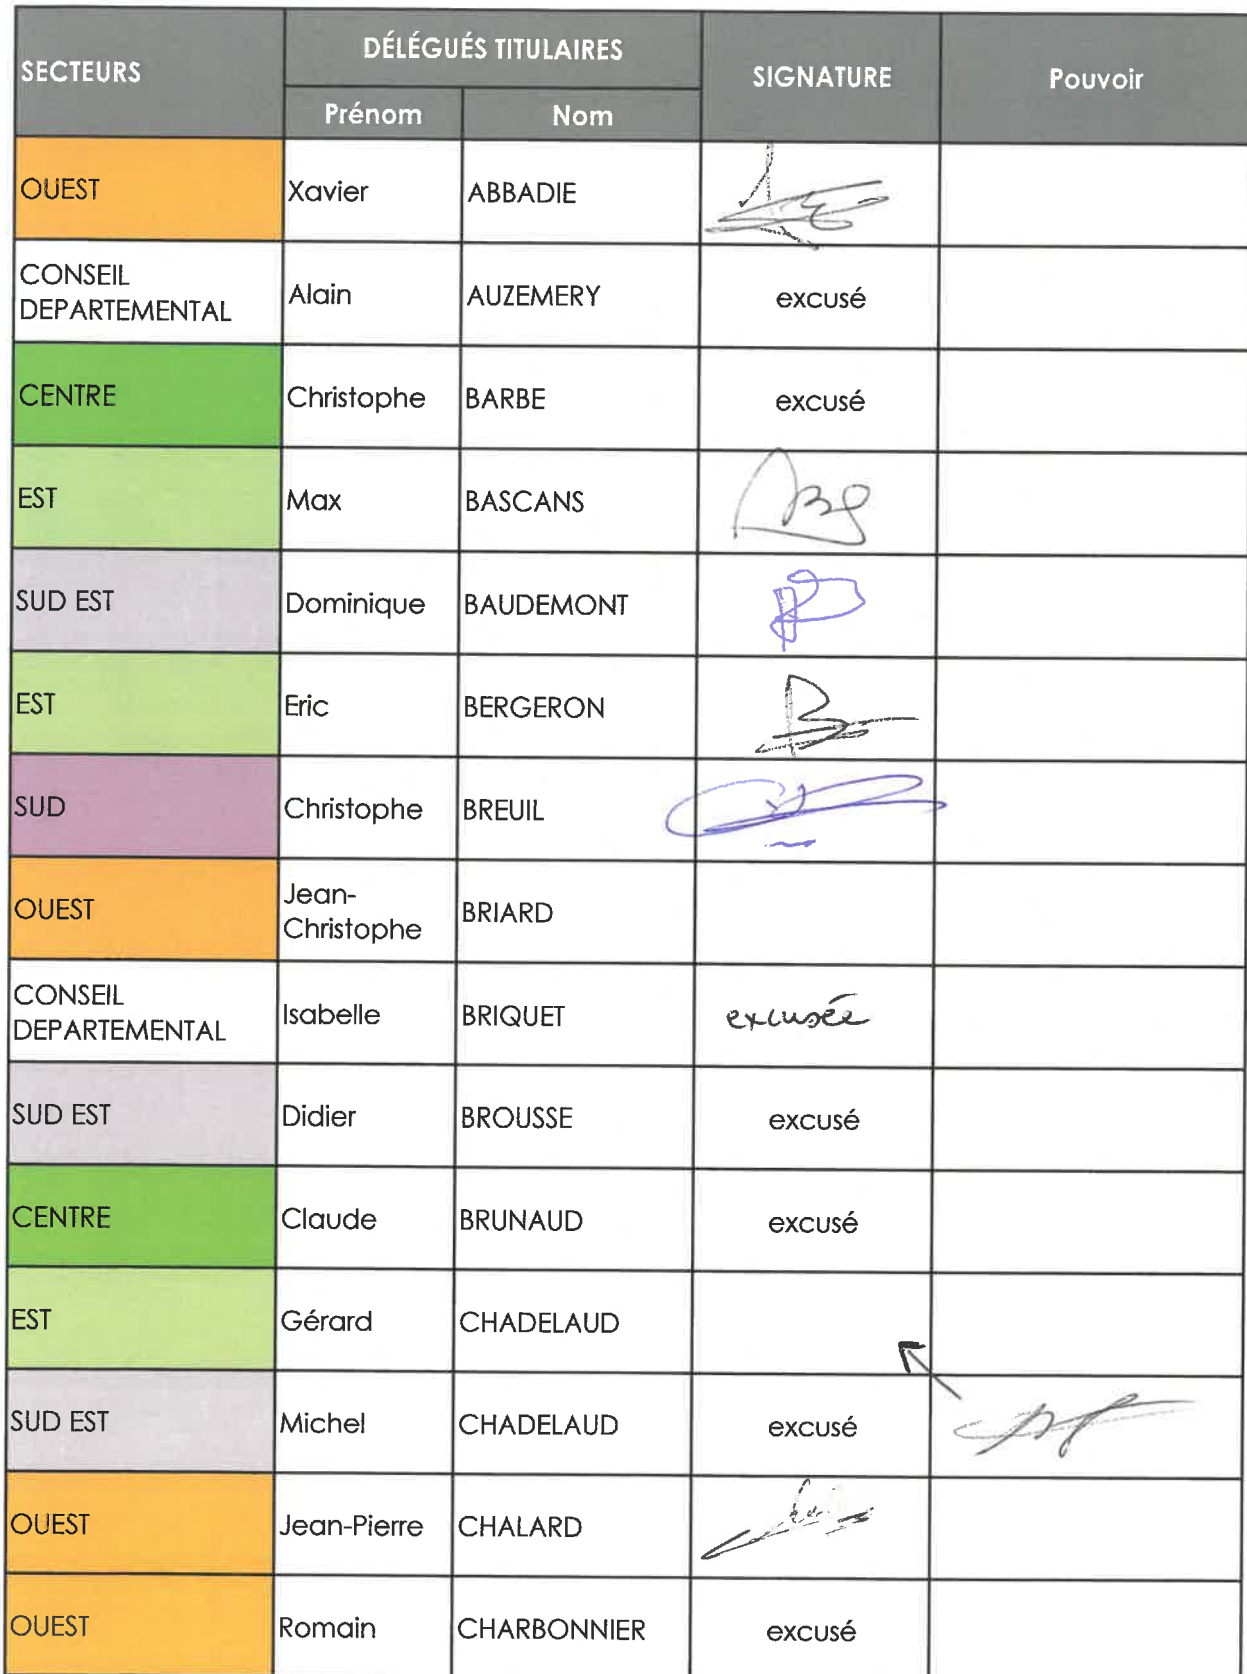 SECTEURS
DÉLÉGUÉS TITULAIRES
SIGNATURE
Pouvoir
Prénom
Nom
OUEST
Xavier
ABBADIE
CONSEIL
DEPARTEMENTAL
Alain
AUZEMERY
excusé
CENTRE
Christophe
BARBE
excusé
EST
Max
BASCANS
SUD EST
Dominique
BAUDEMONT
EST
Eric
BERGERON
SUD
Christophe
BREUIL
OUEST
Jean-
Christophe
BRIARD
CONSEIL
DEPARTEMENTAL
Isabelle
BRIQUET
excusée
SUD EST
Didier
BROUSSE
excusé
CENTRE
Claude
BRUNAUD
excusé
EST
Gérard
CHADELAUD
SUD EST
Michel
CHADELAUD
excusé
OUEST
Jean-Pierre
CHALARD
OUEST
Romain
CHARBONNIER
excusé